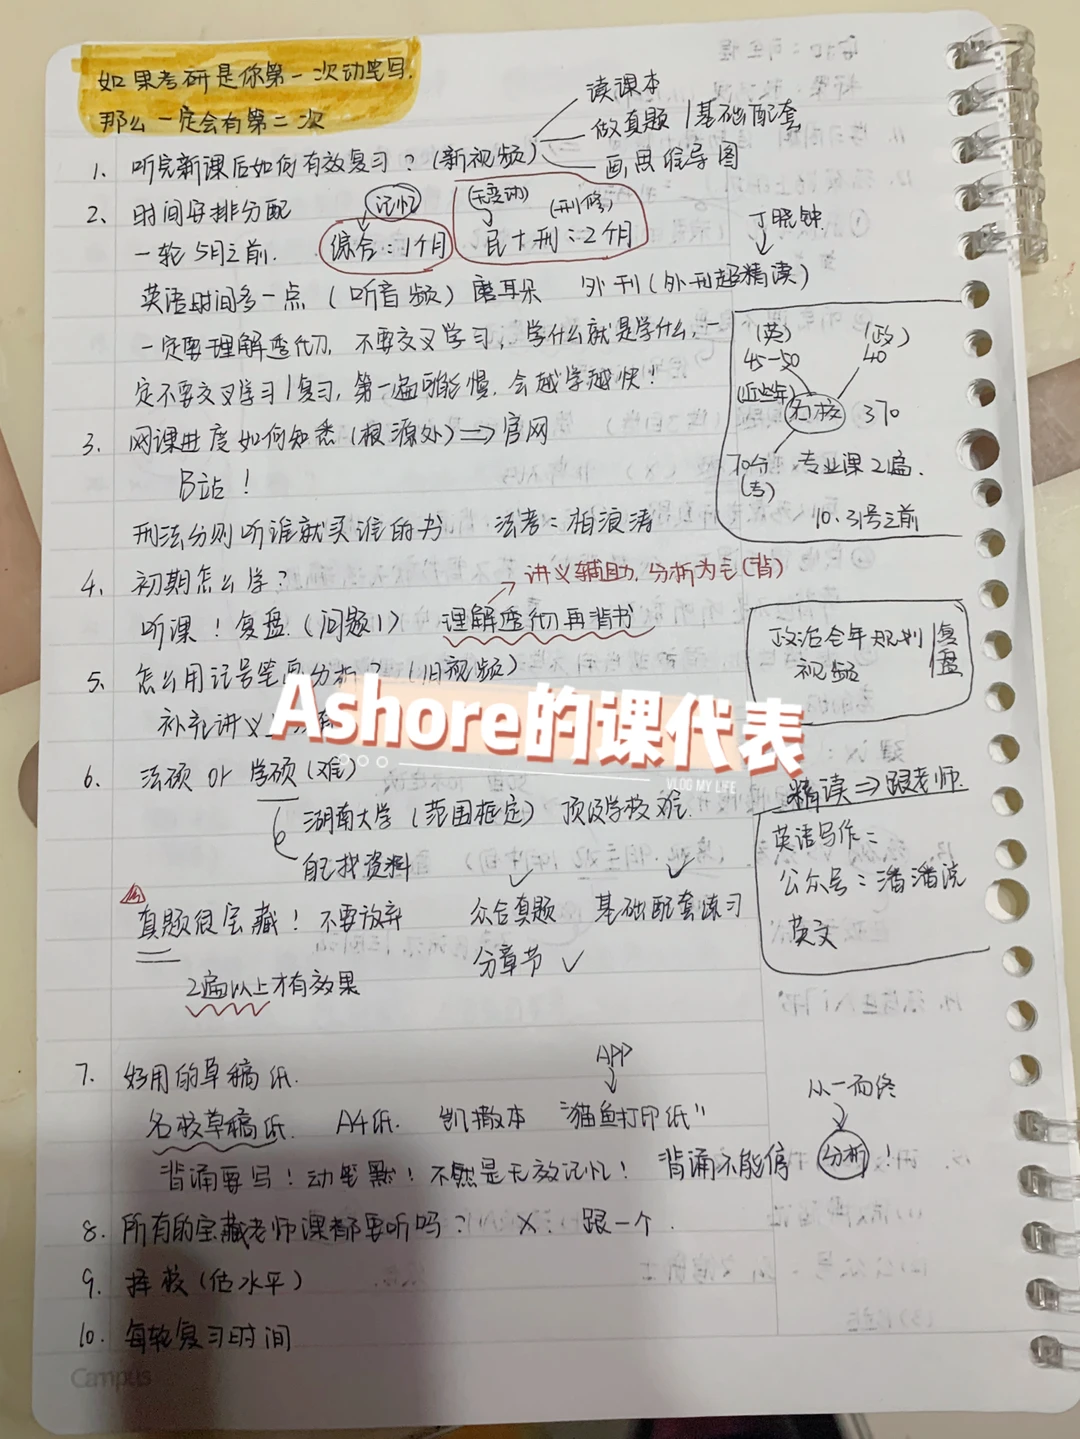 如果考研是你第一次动笔写,
那么一定会有第二次
读课本
做真题/基础配套
画思维导图
1. 听完新课后如何有效复习?(新视频)
2. 时间安排分配
记忆
(无变动)
(刑修)
一轮 5月之前.
综合:1个月
民+刑:2个月
丁晓钟
英语时间多一点(听音频)磨耳朵 外刊(外刊超精读)
一定要理解透彻, 不要交叉学习, 学什么就是学什么, 一
定不要交叉学习/复习, 第一遍可能慢, 会越学越快!
(英)
(政)
45-50
40
(近些年)
名校 370
70分
(专)
专业课2遍.
10.31号之前
3. 网课进度如何知悉(根源处)⇒官网
B站!
刑法分则听谁就买谁的书 法考:柏浪涛
4. 初期怎么学?
讲义辅助, 分析为主(背)
听课!复盘.(问题1) 理解透彻再背书
政治全年规划
视频
复盘
5. 怎么用记号笔画分析?(旧视频)
补充讲义
Ashore的课代表
VLOG MY LIFE
6. 法硕 or 学硕(难)
湖南大学(范围框定) 顶级学校难.
自己找资料
精读⇒跟老师.
英语写作:
公众号:潘潘说
英文
真题很宝藏!不要放弃 众合真题 基础配套练习
分章节 ✓
2遍以上才有效果
7. 好用的草稿纸.
APP
名校草稿纸. A4纸. 凯撒本 "猫鱼打印纸"
从一而终
背诵要写!动笔默!不然是无效记忆! 背诵不能停 分析!
8. 所有的宝藏老师课都要听吗? X. 跟一个.
9. 择校(估水平)
10. 每轮复习时间
Campus